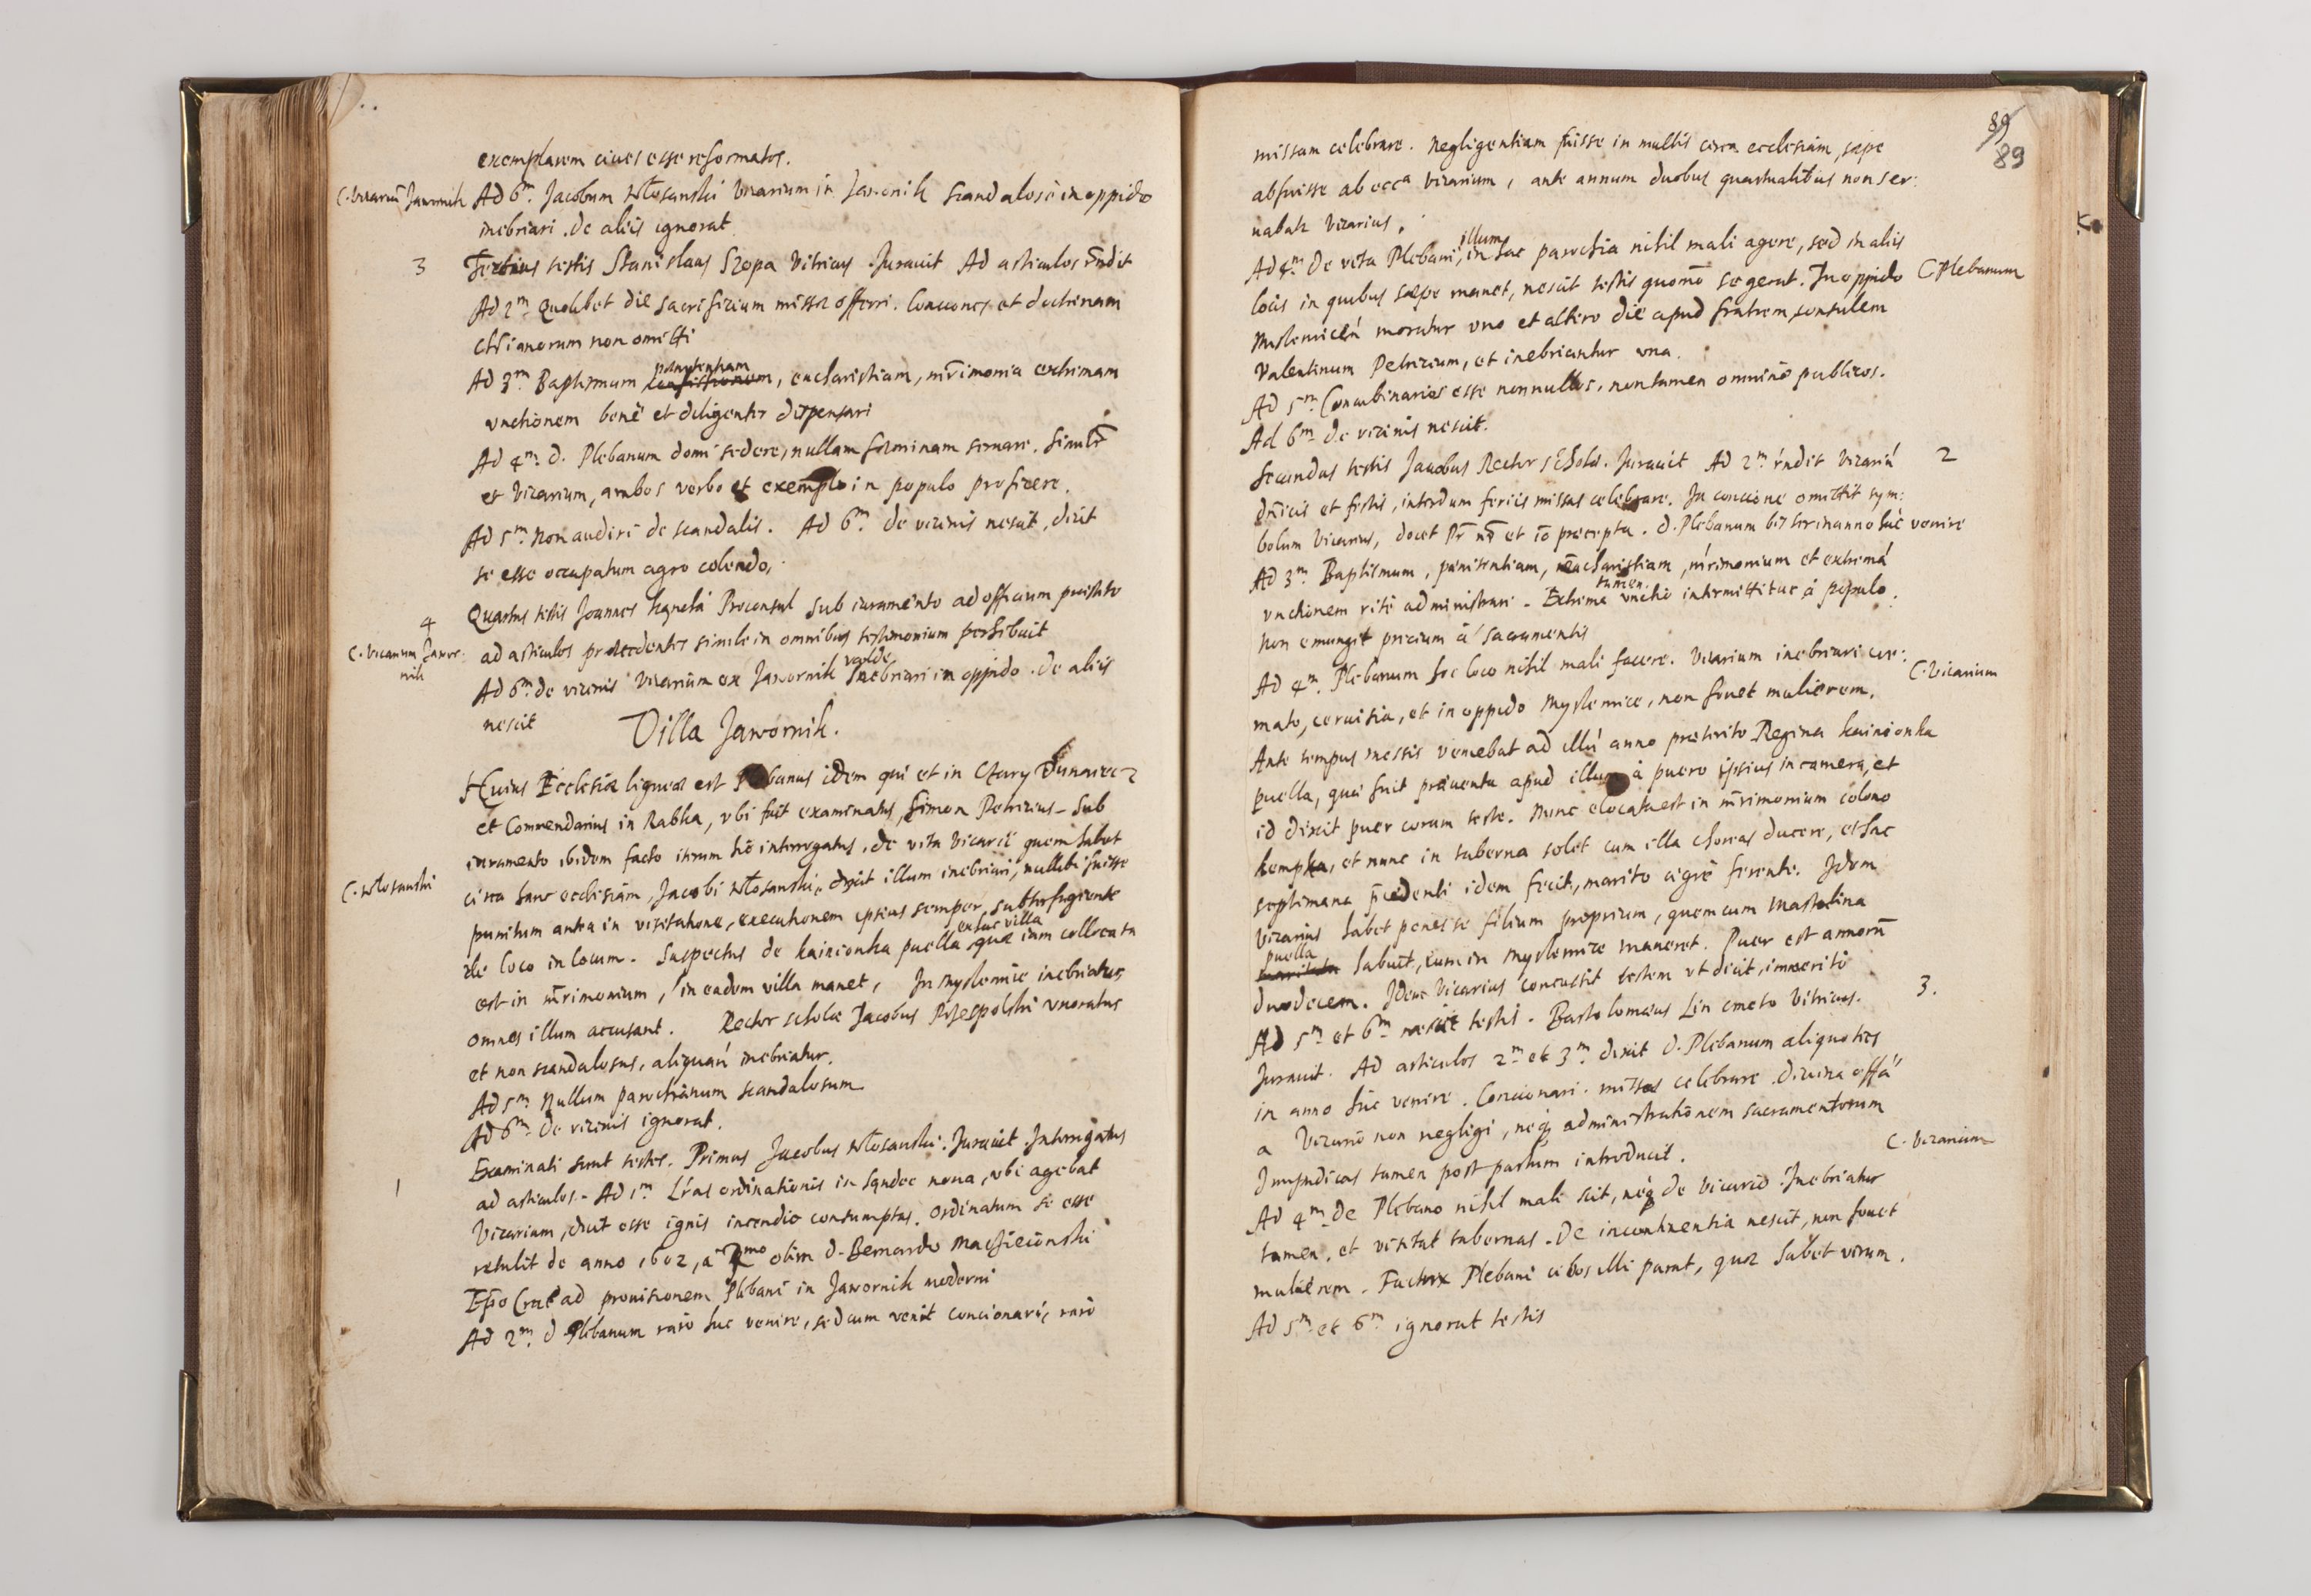 exemplarem ciues esse reformatos.
C. Vicariũ Jawornik
Ad 6m. Jacobum Włosanski Vicarium in Jawornik scandalosè in oppido
inebriari. De aliis ignorat
3
Tertius testis Stanislaus Szopa Vitricus. Jurauit Ad articulos rñdit
Ad 2m. Quolibet die sacrificium missæ offerri. Conciones et doctrinam
chřianorum non omitti
pœnitentiam
Ad 3m. Baptismum confessionem, eucharistiam, mřimonia extremam
vnctionem benè et diligenter dispensari
Ad 4m. D. Plebanum domi sedere, nullam fœminam seruare. Simulr̃
et Vicarium, ambos verbo et exemplo in populo proficere.
Ad 5m. Non audiri de scandalis. Ad 6m. de vicinis nescit, dicit
se esse occupatum agro colendo,
4
Quartus testis Joannes Proconsul sub iuramento ad officium præstito
C. Vicarium Jawor
nik
ad articulos præcedentes simile in omnibus testimonium perhibuit
valde
Ad 6m. de vicinis Vicarium ex Jawornik inebriari in oppido. de aliis
nescit
Villa Jawornik.
Huius Ecclesiæ ligneæ est Plebanus idem qui et in Czary Dunaiec
et Commendarius in Rabka, vbi fuit examinatus, Simon Petricius. Sub
iuramento ibidem facto iterum hic interrogatus, de vita Vicarii quem habet
C. Włosanski
circa hanc ecclesiam, Jacobi Włosanski. dixit illum inebriari, nullibi fuisse
punitum antea in visitatione, executionem ipsius semper subterfugiente
ex hac villa
de loco in locum. Suspectus de kaincionka puella, quæ iam collocata
est in mřimonium, in eadem villa manet, In Myslemice inebriatur
omnes illum accusant. Rector scholæ Jacobus Przespolski vxoratus
et non scandalosus, aliquañ inebriatur.
Ad 5m. Nullum parochianum scandalosum
Ad 6m. De vicinis ignorat.
1
Examinati sunt testes. Primus Jacobus Włosanski. Jurauit. Interrogatus
ad articulos. Ad 1m. Lřas ordinationis in Sandec noua, vbi agebat
Vicarium, dicit esse ignis incendio consumptas. Ordinatum se esse
retulit de anno 1602, a Rmo olim D. Bernardo Macieiowski
Epõ Crac ad prouisionem Plebani in Jawornik moderni
Ad 2m. D Plebanum rarò huc venire, sed cum venit concionari, rarò
89
89
missam celebrare. Negligentiam fuisse in multis circa ecclesiam, sæpe
abfuisse ab ecca Vicarium, ante annum duobus quartualibus non ser:
uabat Vicarius.
illum
Ad 4m. De vita Plebani, in hac parochia nihil mali agere, sed in aliis
C Plebanum
locis in quibus sæpe manet, nescit testis quomõ se gerat. In oppido
moratur vno et altero die apud fratrem, consulem
Valentinum Petricium, et inebriantur vna.
Ad 5m. Concubinarios esse nonnullos, non tamen omninò publicos.
Ad 6m. de vicinis nescit.
2
Secundus testis Jacobus Rector scholæ. Jurauit Ad 2m. rñdit Vicariũ
dñicis et festis, interdum feriis missas celebrare. In concione omittit sym:
bolum Vicarius, docet Pr̃ nr̃ et 10 præcepta. D. Plebanum bis ter in anno huc venire
Ad 3m. Baptismum, pœnitentiam, eucharistiam, mřimonium et extremã
tamen
vnctionem ritè administrari. Extrema vnctio intermittitur à populo.
Non emungit precium à sacramentis
Ad 4m. Plebanum hoc loco nihil mali facere. Vicarium inebriari cre:
C. Vicarium
mato, ceruisia, et in oppido Myslemice, non fouet mulierem.
Ante tempus messis veniebat ad illũ anno præterito Regina kaincionka
puella, quæ fuit præuenta apud illum à puero ipsius in camera, et
id dixit puer coram teste. Nunc elocata est in mřimonium colono
kempka, et nunc in taberna solet cum illa choreas ducere, et hac
septimana p̃cedenti idem fecit, marito ægrè ferente. Idem
Vicarius habet penes se filium proprium, quem cum
puella
habuit, cum in Myslemice maneret. Puer est annorũ
duodecem. Idem Vicarius concussit testem vt dicit, immeritò
3.
Ad 5m. et 6m. nescit testis. Bartolomæus Lin cmeto Vitricus.
Jurauit. Ad articulos 2m. et 3m. dixit D. Plebanum aliquoties
in anno huc venire. Concionari. missas celebrare. diuina offa
a Vicario non negligi, neqȝ administrationem sacramentorum
C. Vicarium
Impudicas tamen post partum introducit.
Ad 4m. De Plebano nihil mali scit, neqȝ de Vicario. Inebriatur
tamen, et visitat tabernas. De incontinentia nescit, non fouet
mulierem. Factrix Plebani cibos illi parat, quæ habet virum.
Ad 5m. et 6m. ignorat testis